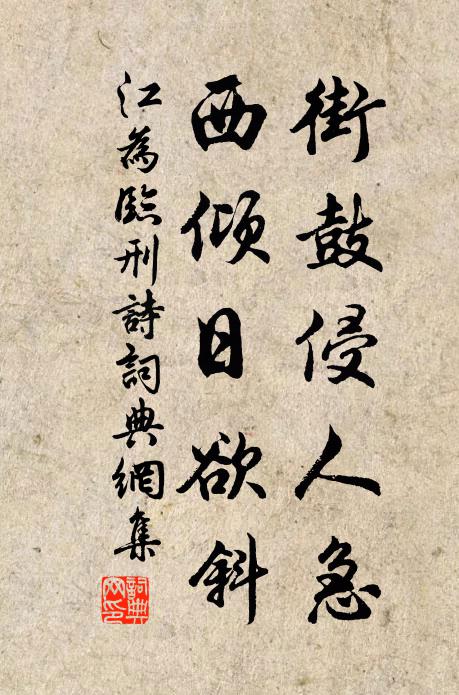 街鼓侵人急
西倾日欲斜
江為臨刑詩詞典網集